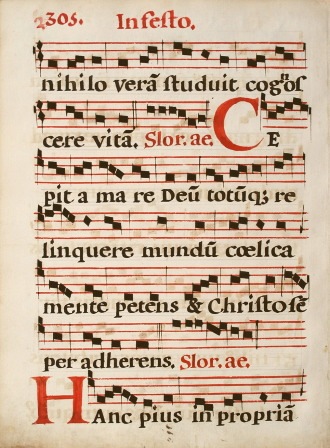 230s. In festo.
nihilo verā studuit cognos
cere vitā. Slor. ae. CE
pit a ma re Deū totūq; re
linquere mundū cœlica
mente petens & Christo sē
per adherens, Slor. ae.
HAnc pius in propria